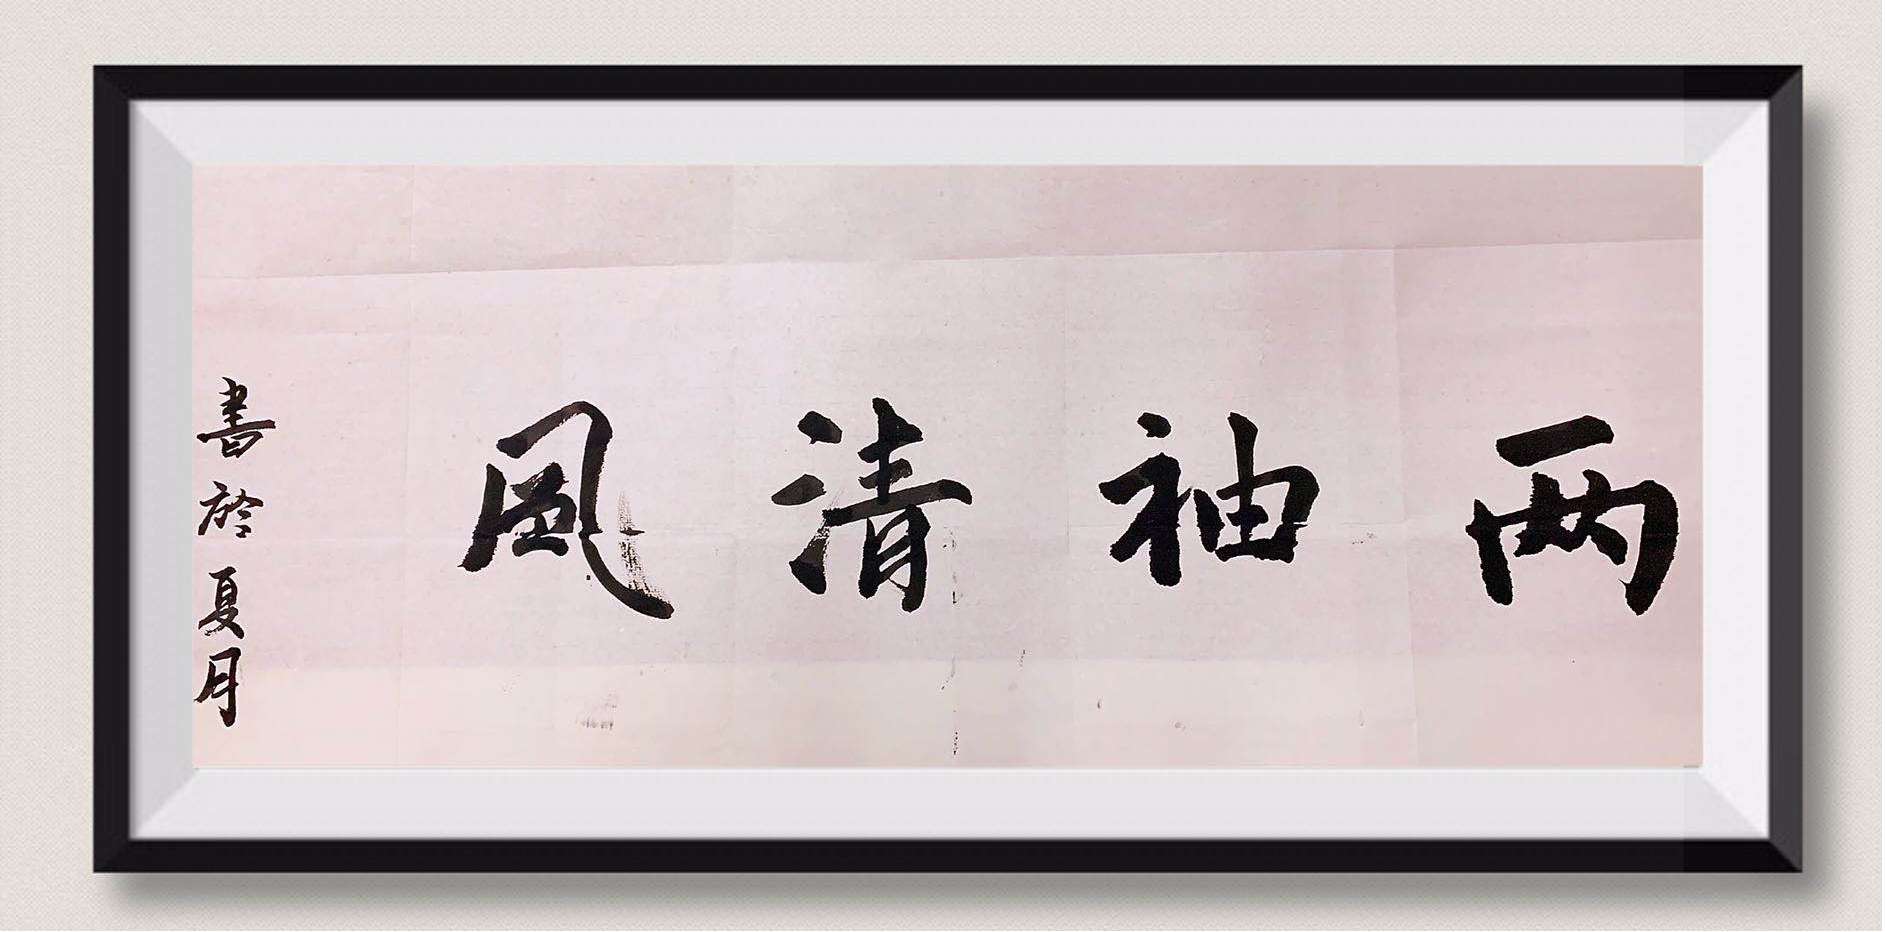 两袖清风
書於夏月